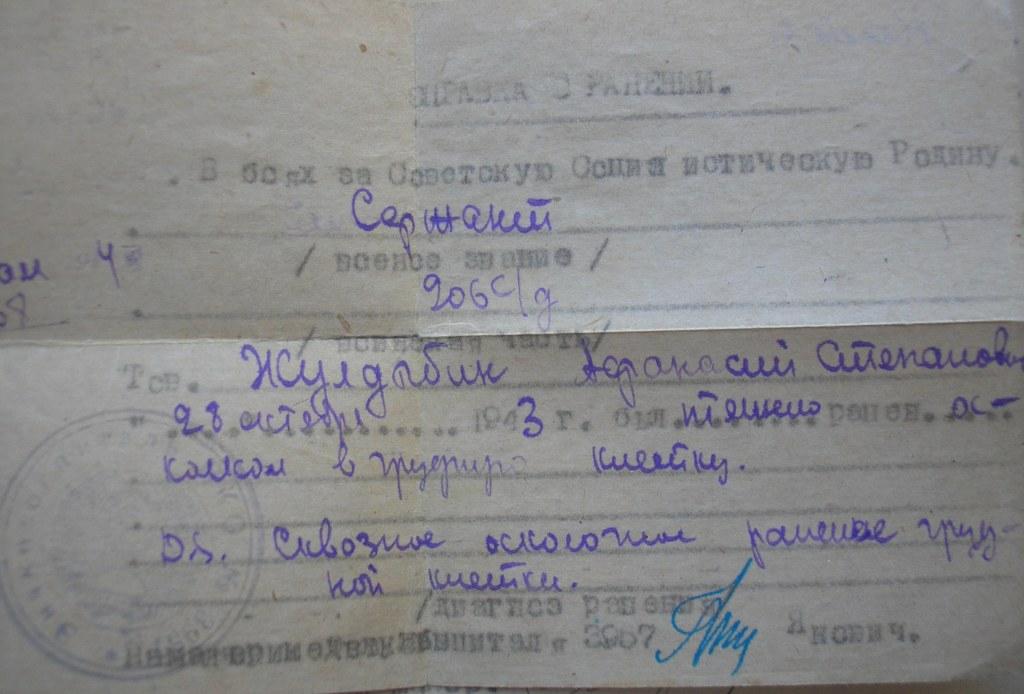 СПРАВКА О РАНЕНИИ.
В боях за Советскую Социа истическую Родину.
Сержант
/ военое звание /
206 с/д
/ воинская часть/
Тов. Жулдыбин Афанасий Степанови
" 28 октября 1943 г. был тяжело ранен ос-
колком в грудную клетку.
DS. Сквозное осколочное ранение груд-
ной клетки.
/диагноз ранения
госпиталя 3907 Янович.